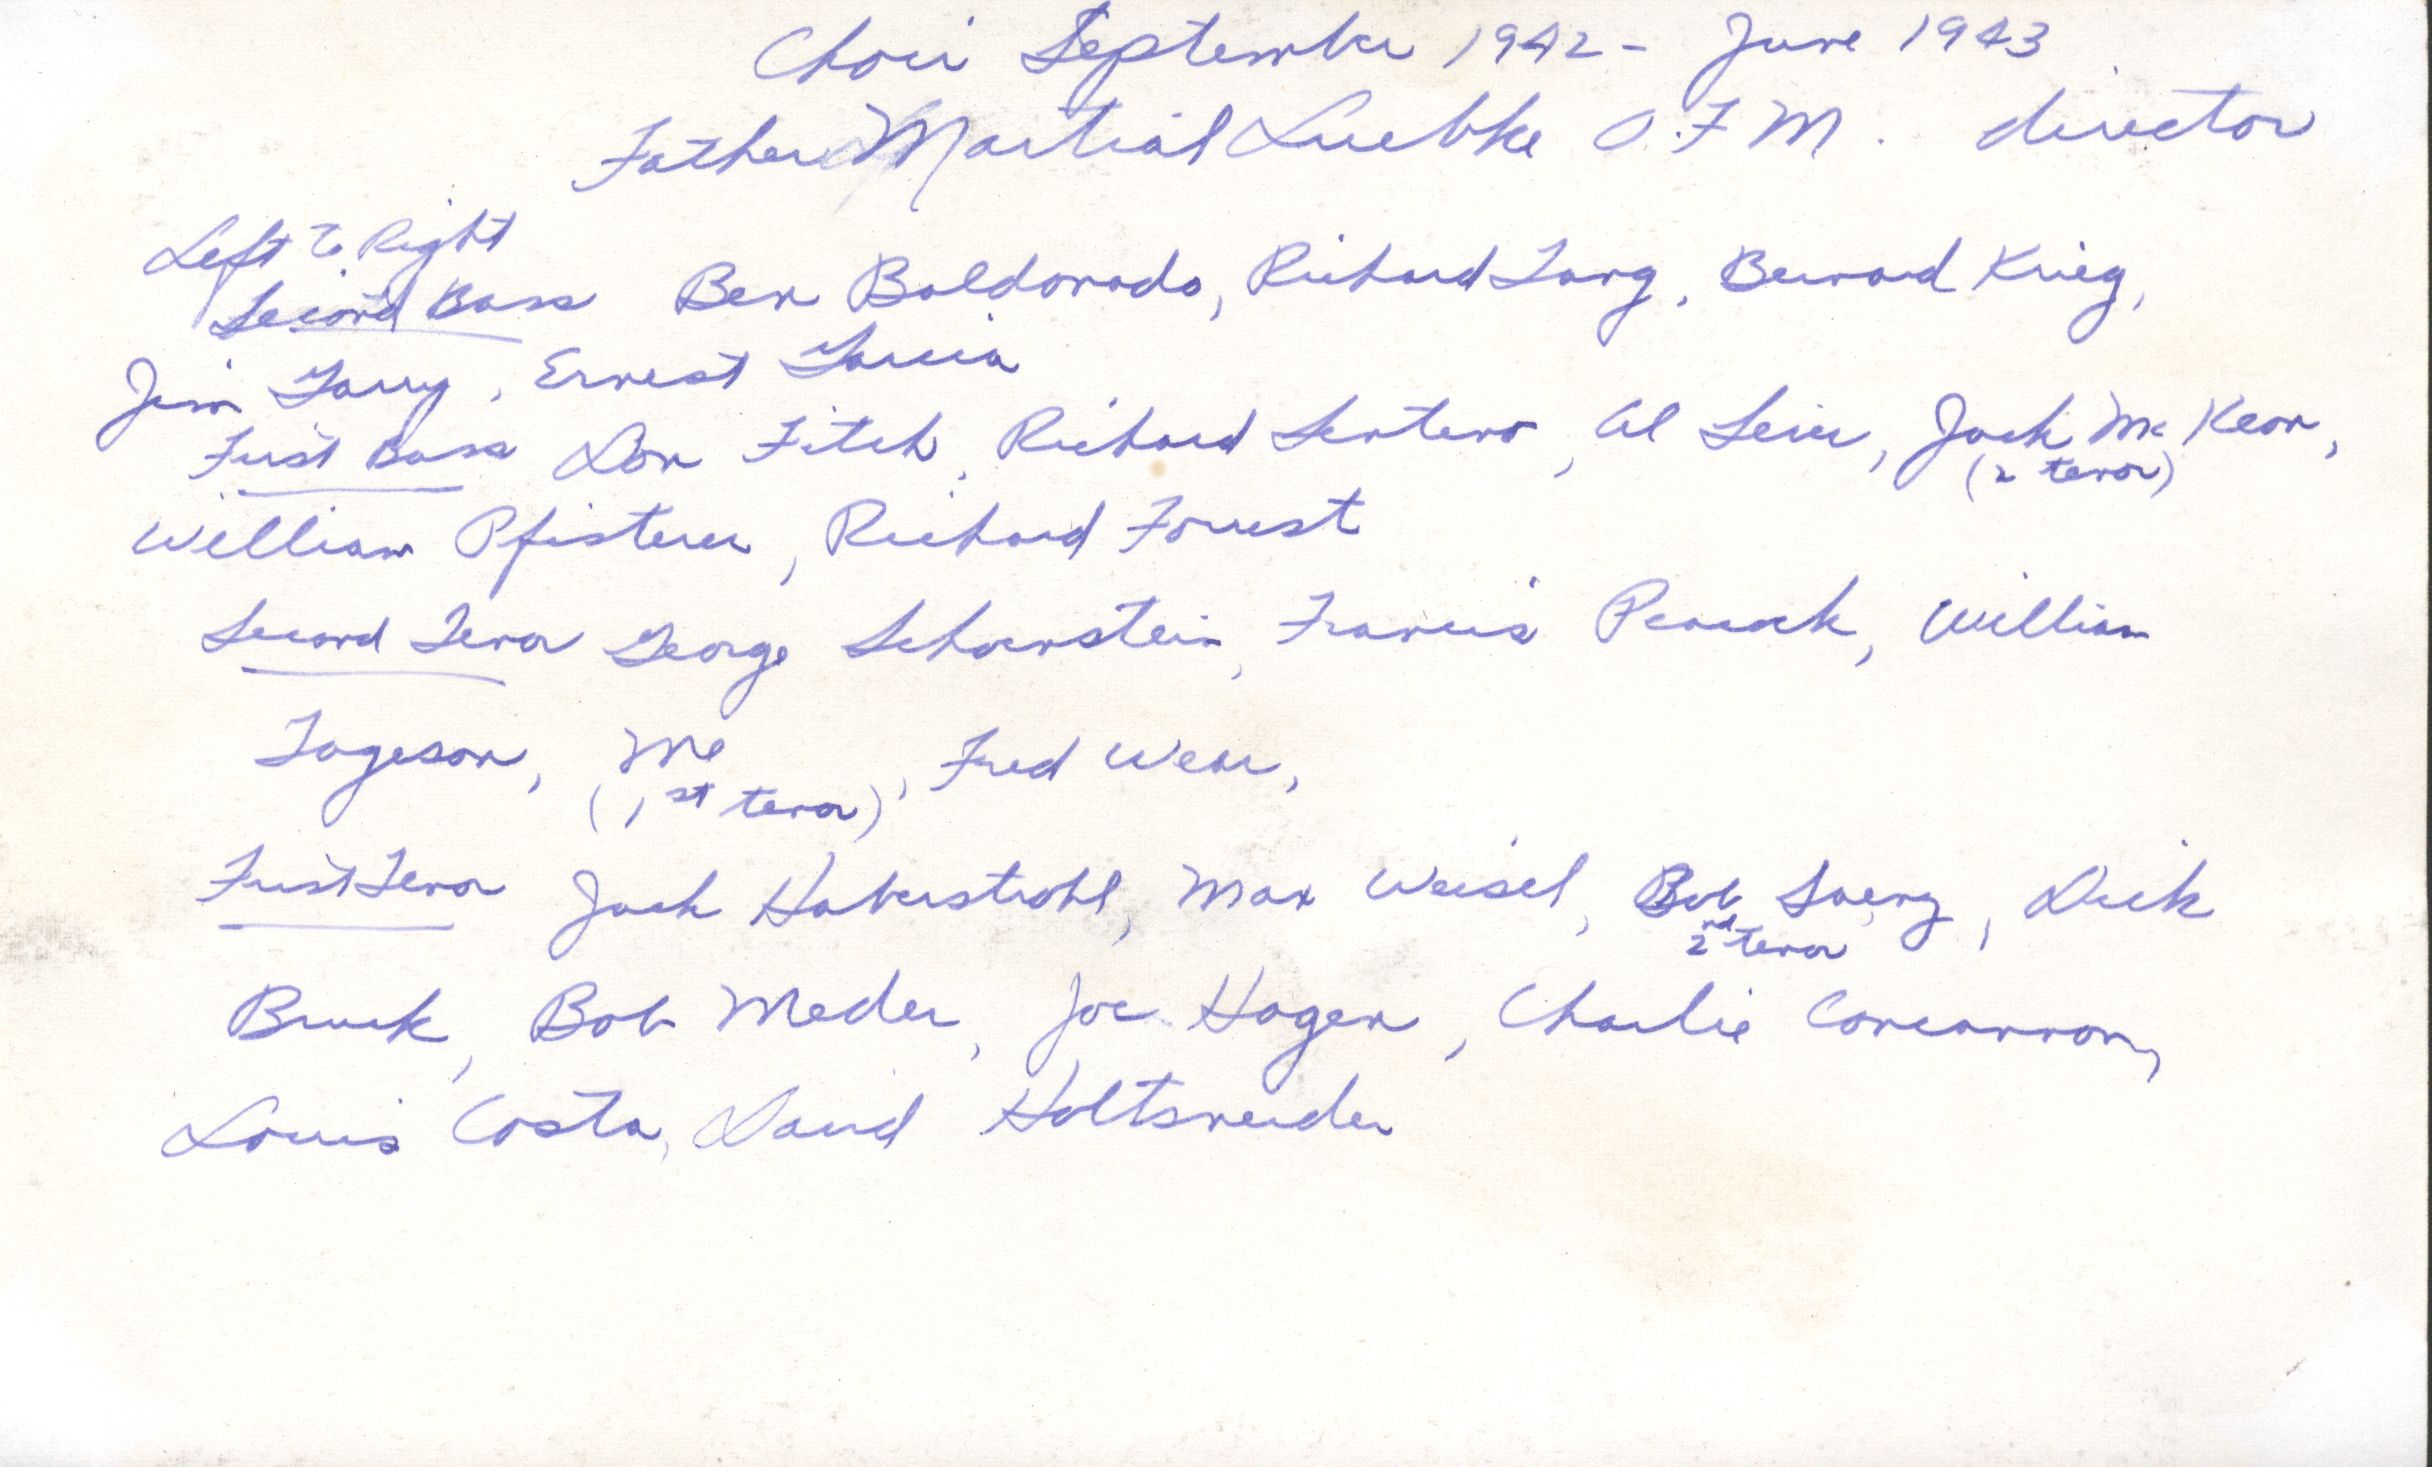 Choir September 1942 - June 1943
Father Martial Luebke O.F.M. director
Left to Right
Second Bass Ben Baldonado, Richard Lang, Bernard Krieg,
Jim Garry, Ernest Garcia
First Bass Don Fitch, Richard Sentero, Al Leier, Jack McKeon,
(2 tenor)
William Pfisterer, Richard Forrest
Second Tenor George Schoenstein, Francis Peacock, William
Tageson, Me, Fred Wear,
(1st tenor)
First Tenor Jack Haberstrohl, Max Weisel, Bob Saenz, Dick
2nd tenor
Bruck, Bob Meder, Joe Hagen, Charlie Concannon,
Louis Costa, David Holtsneider